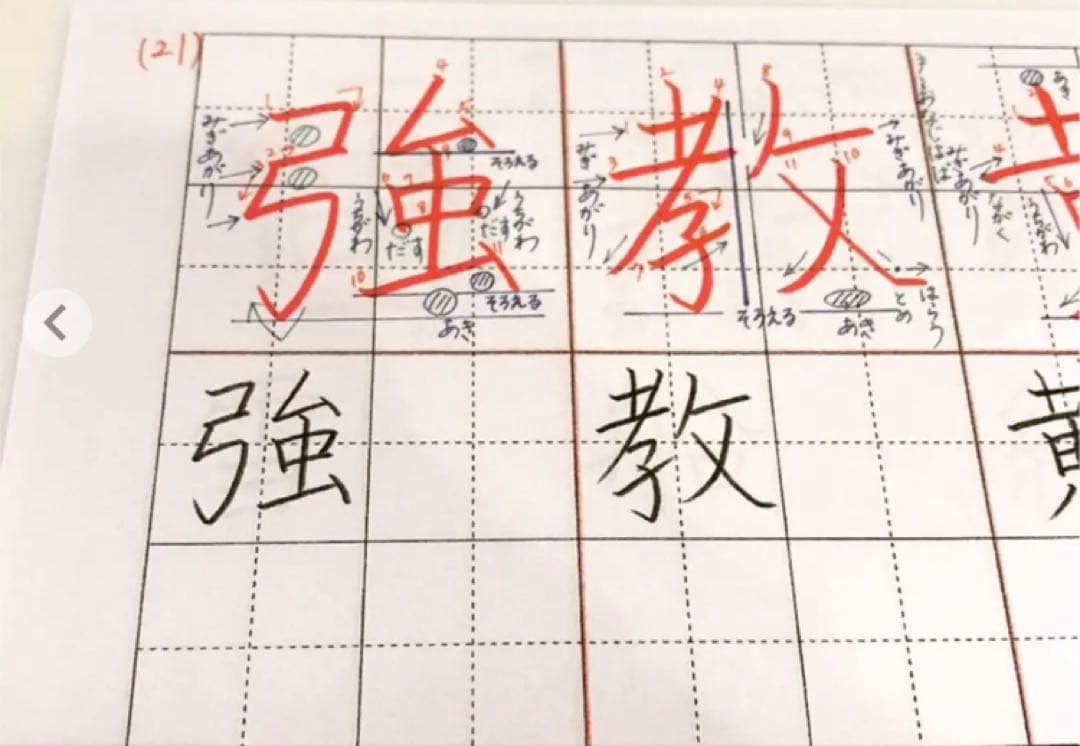 (21)
強 教
みぎあがり
そろえる
うちがわ
だす
だす
うちがわ
そろえる
あき
みぎあがり
みぎあがり
そろえる
あき
とめ
はらう
みぎあがり
ながく
うちがわ
あき
強 教 黄